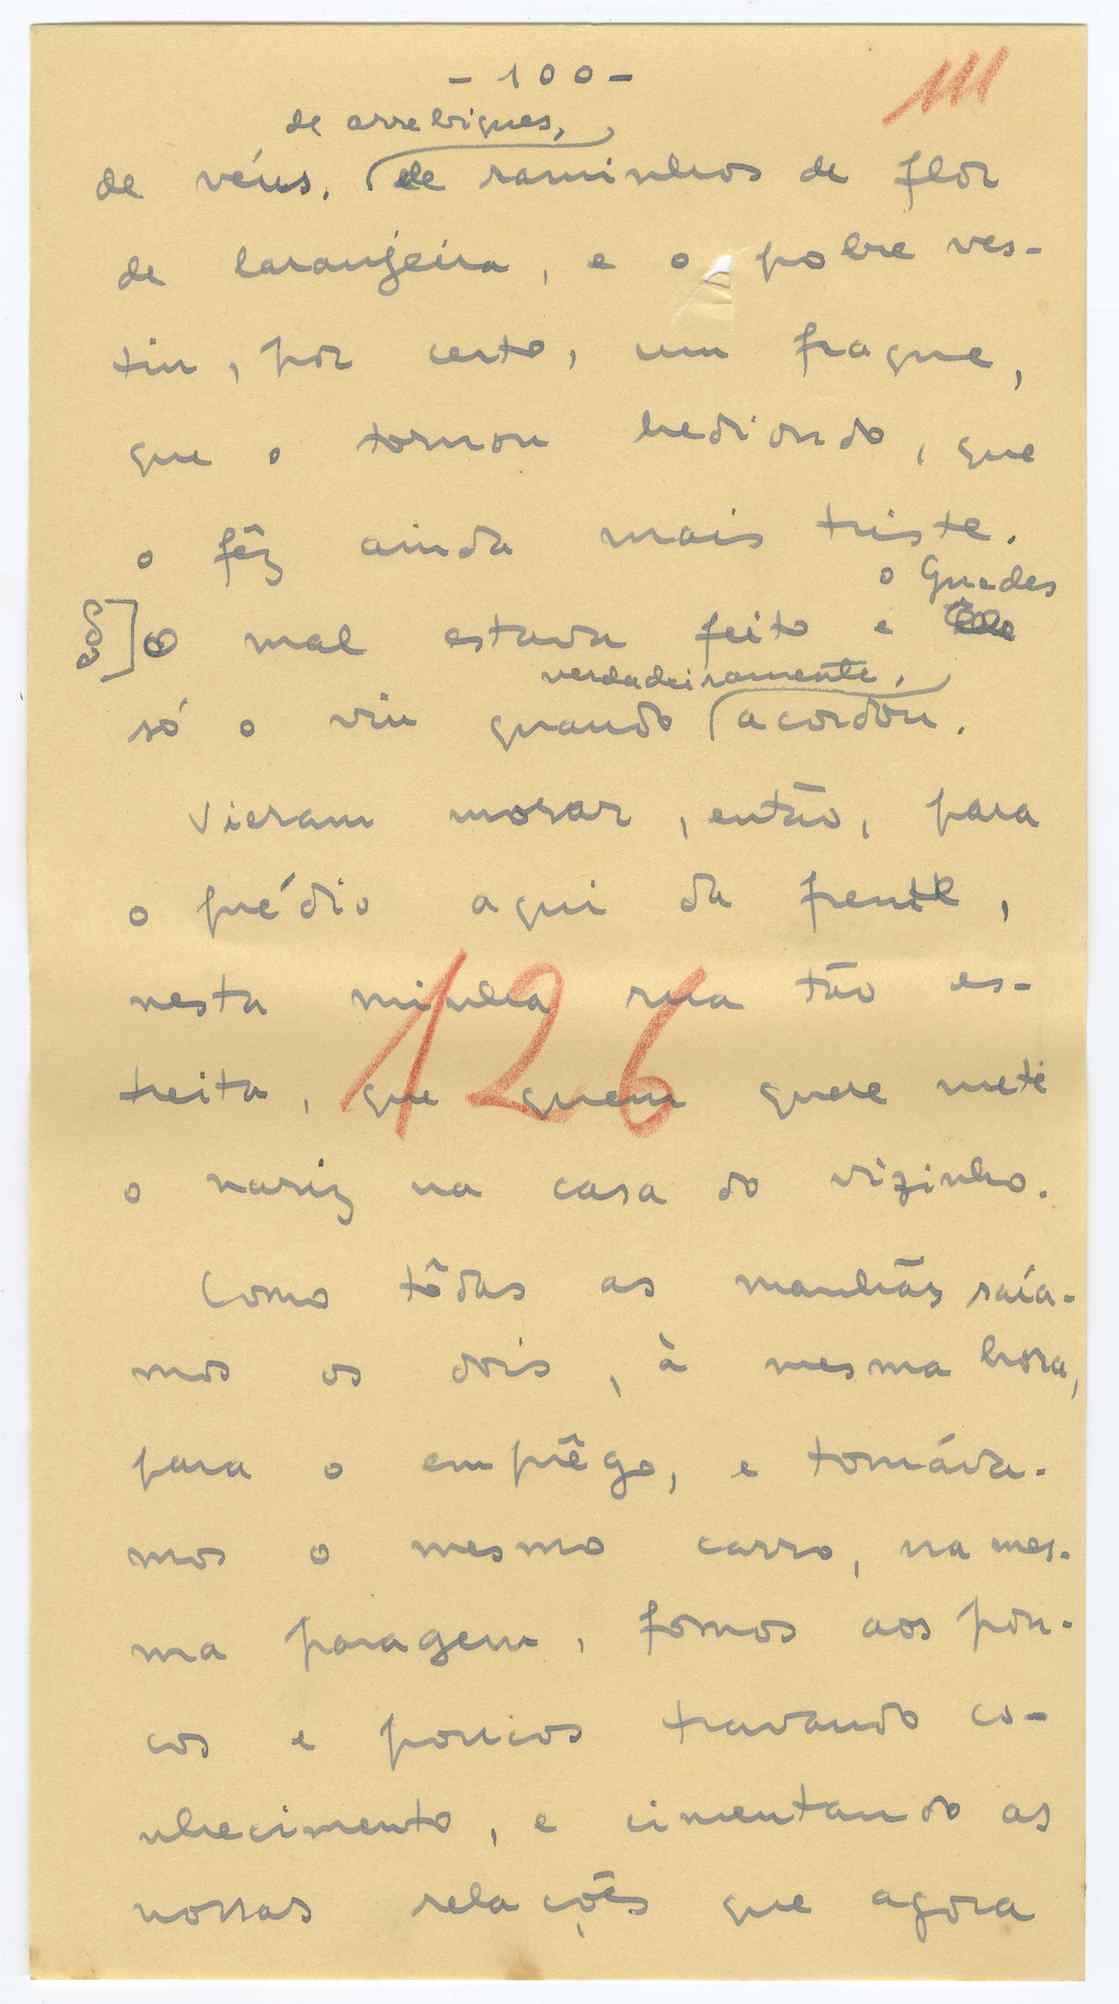 - 100 -
111
de arrebiques,
de véus. de raminhos de flor
de laranjeira, e o pobre ves-
tiu, por certo, um fraque,
que o tornou hediondo, que
o fêz ainda mais triste.
o Guedes
§] O mal estava feito e Êle
verdadeiramente.
só o viu quando acordou.
Vieram morar, então, para
o prédio aqui da frente,
nesta minha rua tão es-
126
treita, que quem quere mete
o nariz na casa do vizinho.
Como tôdas as manhãs saía-
mos os dois, à mesma hora,
para o emprêgo, e tomáva-
mos o mesmo carro, na mes-
ma paragem, fomos aos pou-
cos e poucos travando co-
nhecimento, e cimentando as
nossas relações que agora